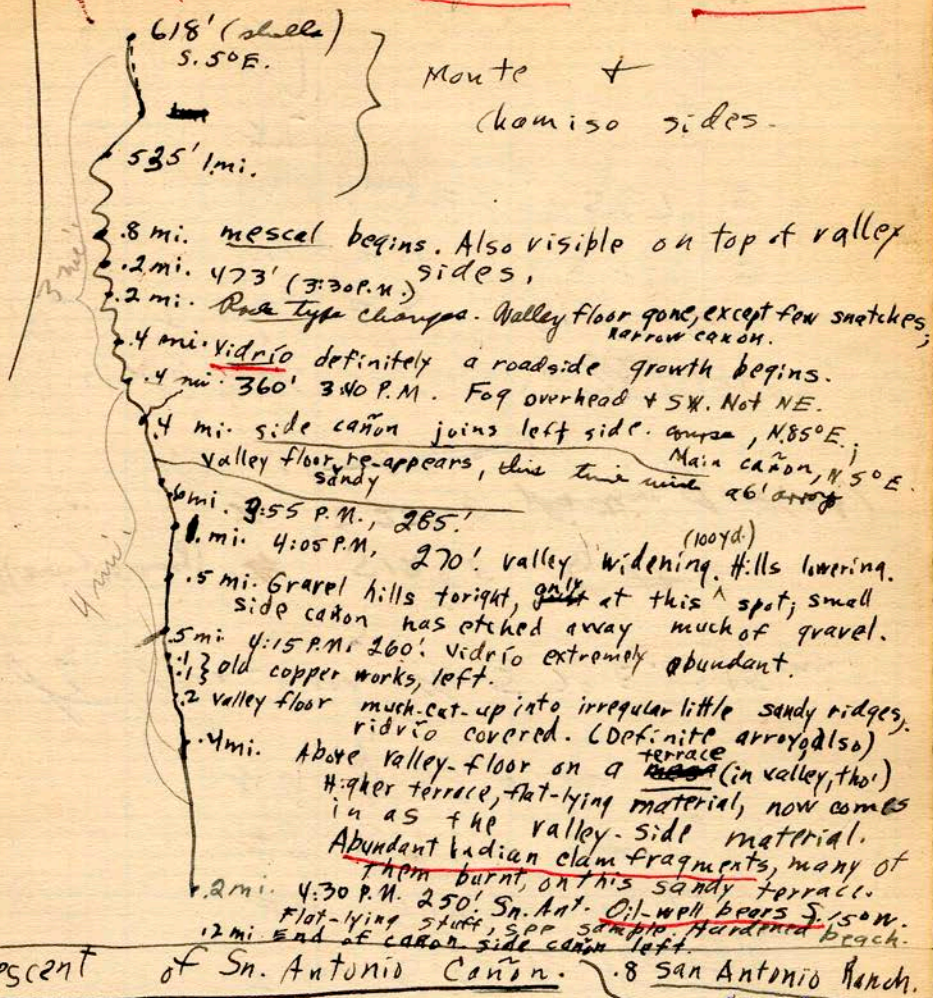 618' (shells)
S. 5° E.
Monte +
chamiso sides.
535' 1 mi.
.8 mi. mescal begins. Also visible on top of valley
sides.
.2 mi. 473' (3:30 P.M.)
.2 mi. Rock type changes. Valley floor gone, except few snatches;
narrow cañon.
.4 mi. Vidrío definitely a roadside growth begins.
.4 mi. 360' 3:40 P.M. Fog overhead + SW. Not NE.
3 mi.
.4 mi. side cañon joins left side. course, N.85°E.;
Main cañon, N.5°E.
valley floor re-appears, this time with a 6' arroyo
sandy
.6 mi. 3:55 P.M., 285'.
1. mi. 4:05 P.M., 270'. valley widening. Hills lowering.
(100 yd.)
.5 mi. Gravel hills to right, only at this spot; small
side cañon has etched away much of gravel.
4 mi.
.5 mi 4:15 P.M. 260'. Vidrío extremely abundant.
.1 } old copper works, left.
.1
.2 valley floor much-cut-up into irregular little sandy ridges,
vidrío covered. (Definite arroyo, also)
.4 mi. Above valley-floor on a terrace (in valley, tho')
Higher terrace, flat-lying material, now comes
in as the valley-side material.
Abundant Indian clam fragments, many of
them burnt, on this sandy terrace.
.2 mi. 4:30 P.M. 250'. Sn. Ant. Oil-well bears S. 15° W.
Flat-lying stuff, see sample. Hardened beach.
.2 mi End of cañon. side cañon left.
escent of Sn. Antonio Cañon. .8 San Antonio Ranch.